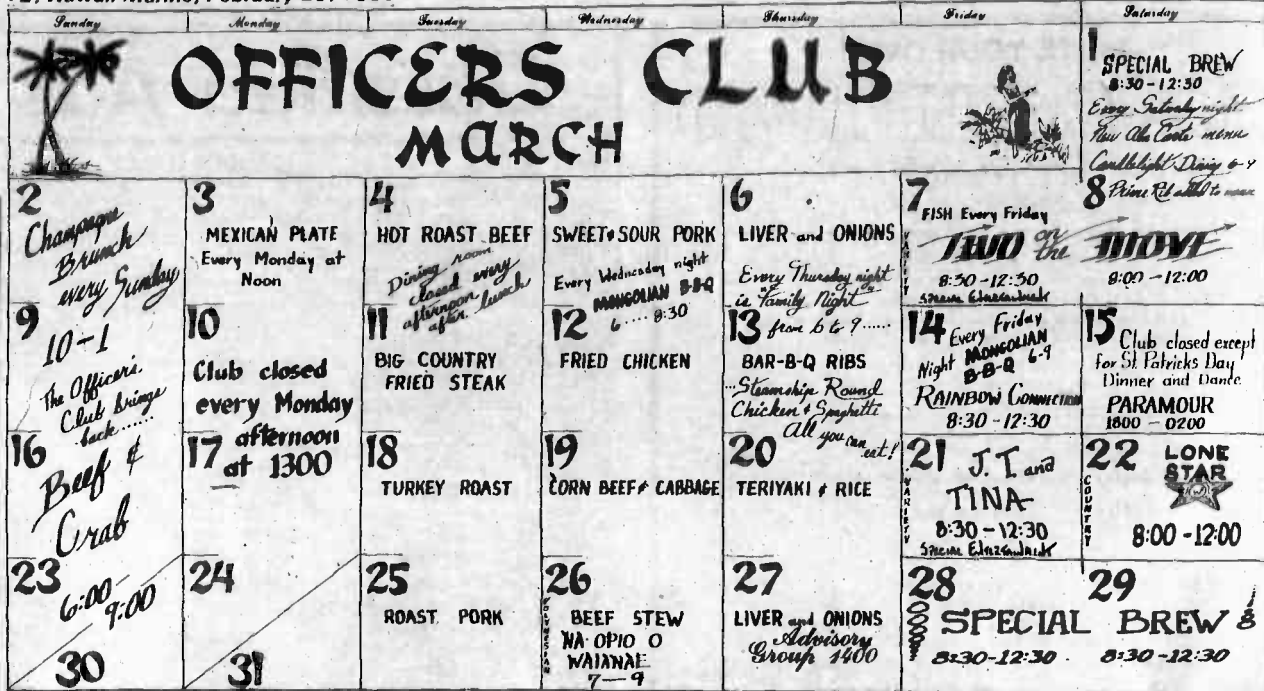 Sunday Monday Tuesday Wednesday Thursday Friday Saturday
OFFICERS CLUB
MARCH
1
SPECIAL BREW
8:30-12:30
Every Saturday night
New Ala Carte menu
Candlelight Dining 6-9
Prime Rib added to menu
2
Champagne
Brunch
every Sunday
10-1
3
MEXICAN PLATE
Every Monday at
Noon
4
HOT ROAST BEEF
Dining room
closed every
afternoon
after lunch
5
SWEET & SOUR PORK
Every Wednesday night
MONGOLIAN B-B-Q
6....8:30
6
LIVER and ONIONS
Every Thursday night
is "Family Night"
from 6 to 9......
7
FISH Every Friday
VARIETY
TWO on the MOVE
8:30-12:30
8
8:00-12:00
9
The Officers
Club brings
back......
10
Club closed
every Monday
afternoon
at 1300
11
BIG COUNTRY
FRIED STEAK
12
FRIED CHICKEN
13
BAR-B-Q RIBS
...Steamship Round
Chicken & Spaghetti
All you can eat!
14
Every Friday
Night MONGOLIAN
B-B-Q 6-9
RAINBOW CONNECTION
8:30-12:30
15
Club closed except
for St Patricks Day
Dinner and Dance
PARAMOUR
1800-0200
16
Beef &
Crab
17
18
TURKEY ROAST
19
CORN BEEF & CABBAGE
20
TERIYAKI & RICE
21
VARIETY
J.T. and
TINA
8:30-12:30
22
COUNTRY
LONE
STAR
8:00-12:00
23
6:00-
9:00
24
25
ROAST PORK
26
POLYNESIAN
BEEF STEW
NA OPIO O
WAIANAE
7-9
27
LIVER and ONIONS
Advisory
Group 1400
28
29
SPECIAL BREW
8:30-12:30 8:30-12:30
30
31